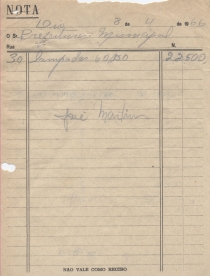 NOTA
Dia 3 de 4 de 1966
O Sr. Prefeitura Municipal
Rua N.
30 lampadas 60/130 22500,
José Martins
NÃO VALE COMO RECIBO